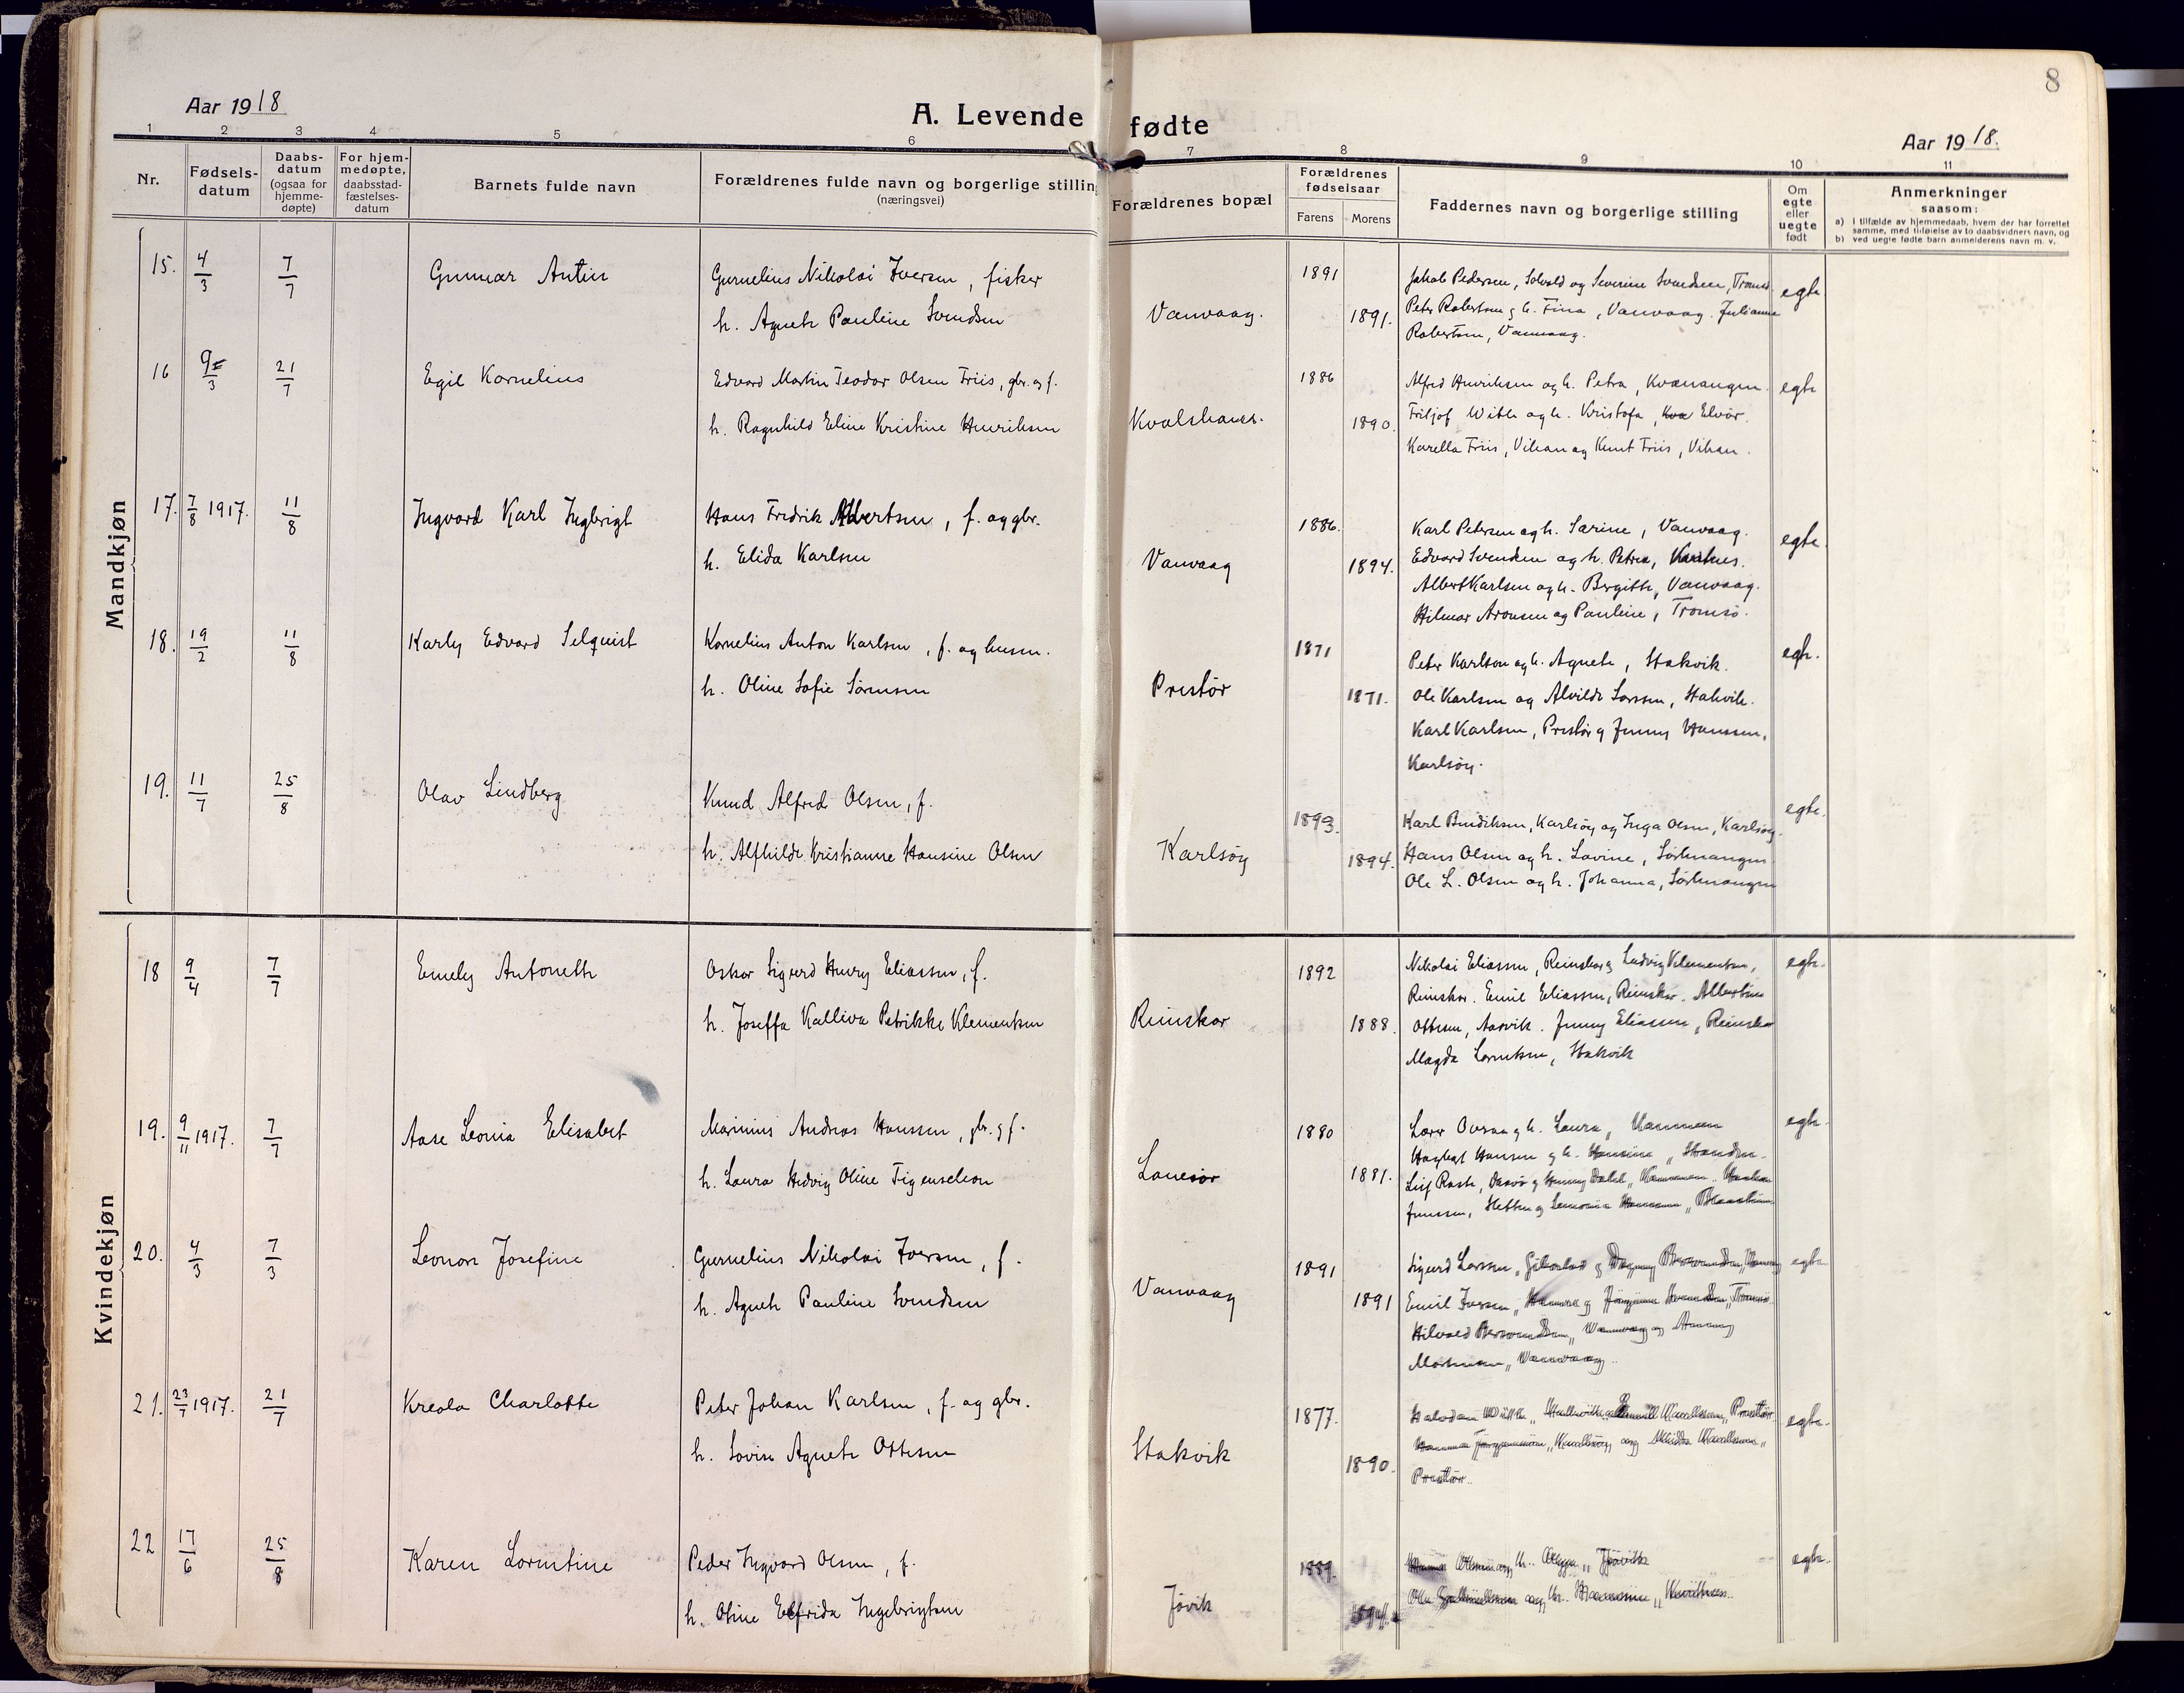 8
Aar 1918
A. Levende fødte
Aar 1918.
1 2 3 4 5 6 7 8 9 10 11
Nr.
Fødsels-
datum
Daabs-
datum
(ogsaa for
hjemme-
døpte)
For hjem-
medøpte,
daabsstad-
fæstelses-
datum
Barnets fulde navn
Forældrenes fulde navn og borgerlige stillin
(næringsvei)
Forældrenes bopæl
Forældrenes
fødselsaar
Farens Morens
Faddernes navn og borgerlige stilling
Om
egte
eller
uegte
født
Anmerkninger
saasom:
a) I tilfælde av hjemmedaab, hvem der har forrettet
samme, med tilføielse av to daabsvidners navn, og
b) ved uegte fødte barn anmelderens navn m. v.
Mandkjøn
15. 4/3 7/7 Gunnar Antin
Gurnelius Nikolai Iversen, fisker
h. Agneth Pauline Svendsen
Vanvaag.
1891
1891.
Jakob Pedersen, Solvald og Severine Svendsen, Tromsø
Peter Robertsen og h. Fina, Vanvaag. Julianne
Robertsen, Vanvaag.
egte
16 9/3 21/7 Egil Kornelius
Edvard Martin Teodor Olsen Friis, gbr. og f.
h. Ragnhild Eline Kristine Henriksen
Kvalshaus.
1886
1890.
Alfred Henriksen og h. Petra, Kvænangen.
Fritjof With og h. Kristofa, Elvör.
Karella Friis, Vihan og Kunt Friis, Vihan.
egte
17. 7/8 1917. 11/8 Ingvard Karl Ingbrigt
Hans Fredrik Albertsen, f. og gbr.
h. Elida Karlsen
Vanvaag
1886.
1894.
Karl Petersen og h. Sarine, Vanvaag.
Edvard Svendsen og h. Petrea,
Albert Karlsen og h. Bergitte, Vanvaag.
Hilmar Aronsen og Pauline, Tromsø.
egte.
18. 19/2 11/8 Karly Edvard Selquist
Kornelius Anton Karlsen, f. og husm.
h. Oline Sofie Sørensen
Prestör
1871
1871.
Peter Karlsen og h. Agnete, Stakvik.
Ole Karlsen og Alvilde Larssen, Stakvik.
Karl Karlsen, Prestör og Jenny Hanssen,
Karlsöy.
egte.
19. 11/7 25/8 Olav Lindberg
Knud Alfred Olsen, f.
h. Alfhilde Kristianne Hansine Olsen
Karlsöy
1893.
1894.
Karl Bendiksen, Karlsöy og Inga Olsen, Karlsöy.
Hans Olsen og h. Lovine, Sörlenangen
Ole L. Olsen og h. Johanna, Sörlenangen
egte.
Kvindekjøn
18 9/4 7/7 Emely Antoneth
Oskar Sigurd Henry Eliassen, f.
h. Joseffa Kalliva Petrikke Klementsen
Reinskar
1892
1888.
Nikolai Eliassen, Reinskar og Ludvig Klementsen,
Reinskar. Emil Eliassen, Reinskar. Albertine
Ottesen, Aasvik. Jenny Eliassen, Reinskar
Magda Lorentsen, Stakvik
egte.
19. 9/11 1917. 7/7 Aase Leonia Elisabet
Marinius Andreas Hanssen, gbr. og f.
h. Laura Hedvig Oline Figenschou
Lanesör
1880
1881.
Lærer Ovesen og h. Laura,
Hansen og h. Hansine,
egte.
20. 4/3 7/3 Leonore Josefine
Gurnelius Nikolai Iversen, f.
h. Agneth Pauline Svendsen
Vanvaag
1891
1891
Sigurd Larssen,
Emil Iversen,
Vanvaag
egte
21. 23/7 1917. 21/7 Kreola Charlotte
Peter Johan Karlsen, f. og gbr.
h. Lovise Agnete Ottesen
Stakvik
1877.
1890.
Prestör
Prestör.
egte.
22 17/6 25/8 Karen Lorentine
Peder Ingvard Olsen, f.
h. Oline Elfrida Ingebrigtsen
Jövik
1889.
egte.